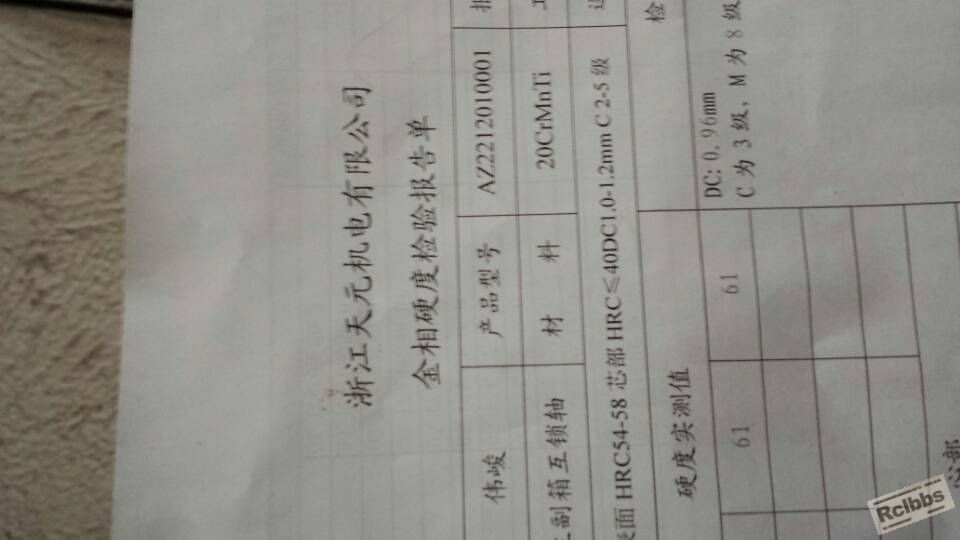 浙江天元机电有限公司
金相硬度检验报告单
伟峻 产品型号 AZ2212010001
副箱互锁轴 材 料 20CrMnTi
面 HRC54-58 芯部 HRC≤40DC1.0-1.2mm C 2-5 级
硬度实测值 检
61 61 DC: 0.96mm
C 为 3 级, M 为 8 级
芯部
Rclbbs